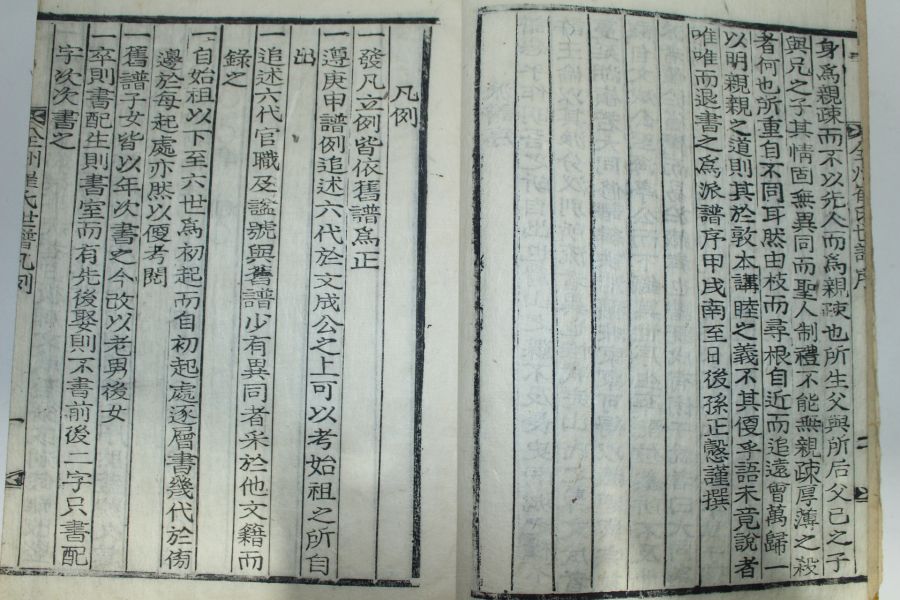 身爲親疎而不以先人而爲親疎也所生父與所后父己之子
與兄之子其情固無異同而聖人制禮不能無親疎厚薄之殺
者何也所重自不同耳然由枝而尋根自近而追遠會萬歸一
以明親親之道則其於敦本講睦之義不其優乎語未竟說者
唯唯而退書之爲派譜序甲戌南至日後孫正愨謹撰
凡例
一發凡立例皆依舊譜爲正
一遵庚申譜例追述六代於文成公之上可以考始祖之所自
出
一追述六代官職及謚號與舊譜少有異同者采於他文籍而
錄之
一自始祖以下至六世爲初起而自初起處逐層書幾代於傍
邊於每起處亦然以便考閱
一舊譜子女皆以年次書之今改以老男後女
一卒則書配生則書室而有先後娶則不書前後二字只書配
字次次書之
全州崔氏世譜凡例
一